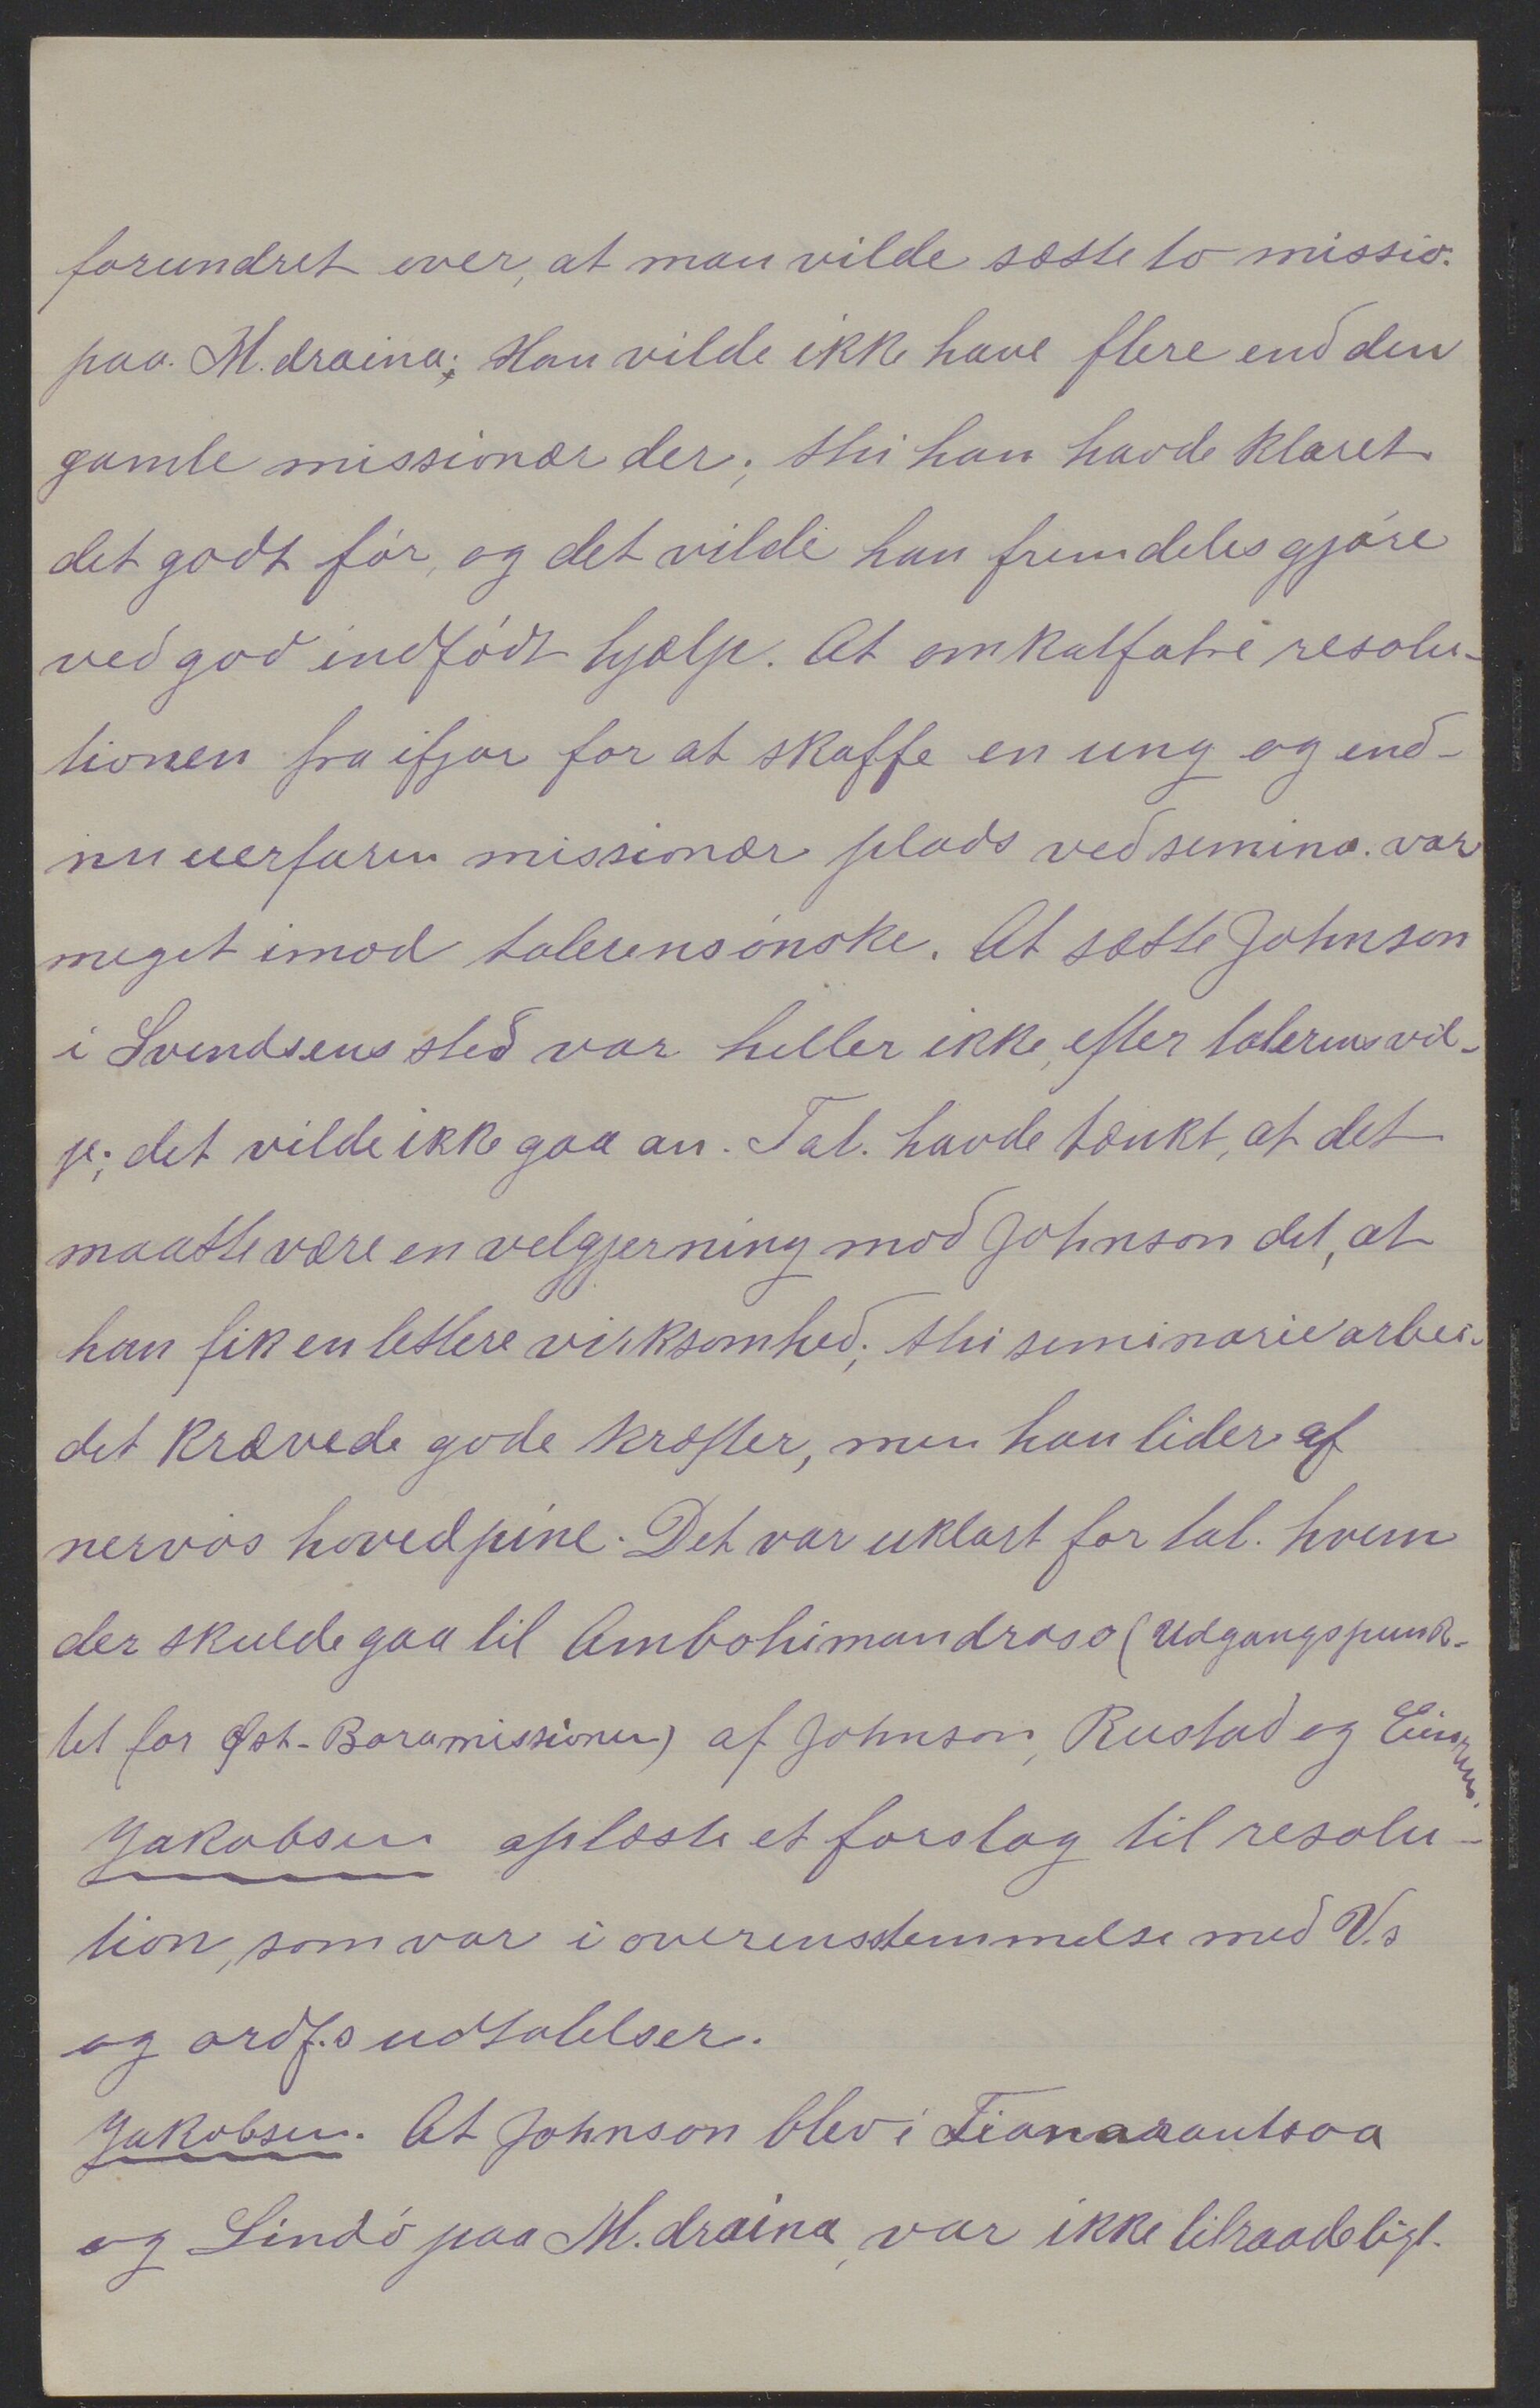 forundret over, at man vilde sætte to missio.
paa. M.draina; Han vilde ikke have flere end den
gamle missionær der; thi han havde klaret
det godt før, og det vilde han fremdeles gjøre
ved god indfødt hjælp. At omkalfatre resolu-
tionen fra ifjor for at skaffe en ung og end-
nu uerfaren missionær plads ved semina. var
meget imod talerens ønske. At sætte Johnson
i Svendsens sted var heller ikke, efter talerens vil-
je; det vilde ikke gaa an. Tal. havde tænkt, at det
maatte være en velgjerning mod Johnson det, at
han fik en lettere virksomhed; thi seminariearbei-
det krævede gode kræfter, men han lider af
nervøs hovedpine. Det var uklart for tal. hvem
der skulde gaa til Ambohimandroso (Udgangspunk-
tet for Øst-Baramissionen) af Johnson, Rustad og Einrem.
Jakobsen oplæste et forslag til resolu-
tion, som var i overensstemmelse med V.s
og ordf.s udtalelser.
Jakobsen. At Johnson blev i Fianarantsoa
og Lindø paa M.draina, var ikke tilraadeligt.